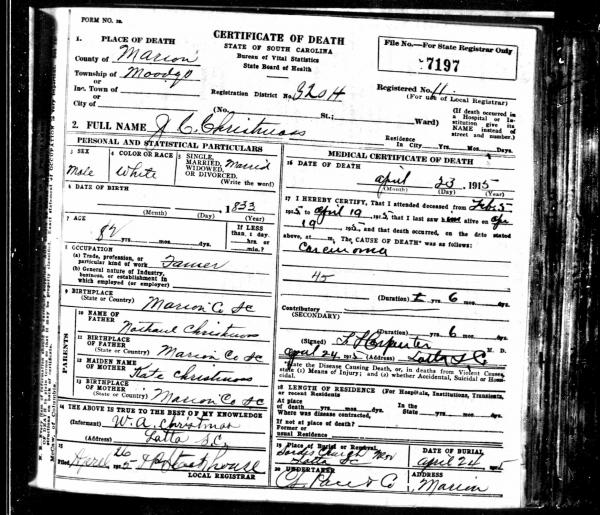 FORM NO.
CERTIFICATE OF DEATH
STATE OF SOUTH CAROLINA
Bureau of Vital Statistics
State Board of Health
File No.—For State Registrar Only
7197
1. PLACE OF DEATH
County of Marion
Township of
or
Inc. Town of
or
City of
Registration District No. 3204
Registered No. 11
(For use of Local Registrar)
(No. St.; Ward)
(If death occurred in a Hospital or Institution give its NAME instead of street and number.)
2. FULL NAME J C Christmas
Residence In City Yrs. Mos. Days
PERSONAL AND STATISTICAL PARTICULARS
3 SEX
Male
4 COLOR OR RACE
White
5 SINGLE, MARRIED, WIDOWED, OR DIVORCED. Married
(Write the word)
6 DATE OF BIRTH
1833
(Month) (Day) (Year)
7 AGE
82 yrs. mos. days
If LESS than 1 day, hrs. or min.?
8 OCCUPATION
(a) Trade, profession, or particular kind of work Farmer
(b) General nature of Industry, business, or establishment in which employed (or employer)
9 BIRTHPLACE
(State or Country) Marion Co SC
PARENTS
10 NAME OF FATHER
Christmas
11 BIRTHPLACE OF FATHER
(State or Country) Marion Co SC
12 MAIDEN NAME OF MOTHER Kate Christmas
13 BIRTHPLACE OF MOTHER
(State or Country) Marion Co SC
14 THE ABOVE IS TRUE TO THE BEST OF MY KNOWLEDGE
(Informant) W. A. Christmas
(Address) Latta SC,
15
Filed April 26 1915
LOCAL REGISTRAR
MEDICAL CERTIFICATE OF DEATH
16 DATE OF DEATH
April 23 1915
(Month) (Day) (Year)
17 I HEREBY CERTIFY, That I attended deceased from Feb 5
1915 to April 19 1915 that I last saw alive on Apr
19 1915, and that death occurred, on the date stated
above, at m. The CAUSE OF DEATH* was as follows:
Carcinoma
45
(Duration) yrs. 6 mos. dys.
Contributory
(SECONDARY)
(Duration) yrs. 6 mos. dys.
(Signed) Carpenter M. D.
April 24 1915 (Address) Latta S C
State the Disease Causing Death, or, in deaths from Violent Causes, state (1) Means of Injury; and (2) whether Accidental, Suicidal or Homicidal.
18 LENGTH OF RESIDENCE (For Hospitals, Institutions, Transients, or recent Residents
At place of death yrs. mos. dys. In the State yrs. mos. dys.
Where was disease contracted,
If not at place of death?
Former or usual Residence
19 Place of Burial or Removal
Latta SC
DATE OF BURIAL
April 24 1915
20 UNDERTAKER
Pace & Co
ADDRESS
Marion